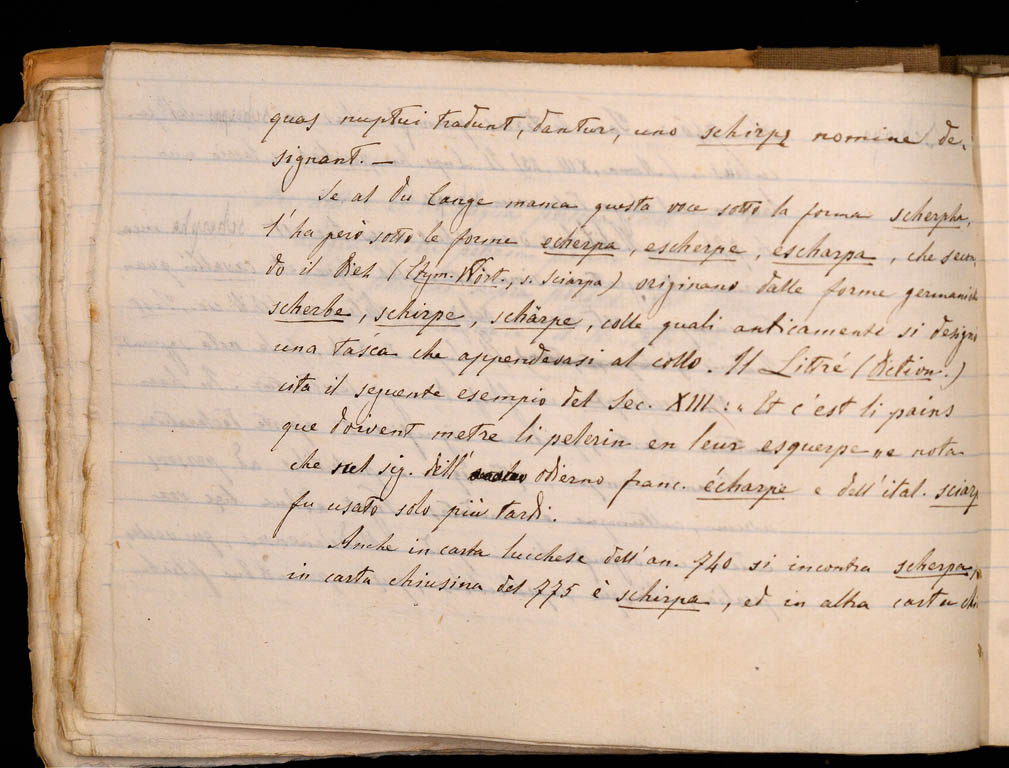 quas nuptui tradunt, dantur, uno schirpę nomine de-
signant. —
Se al Du Cange manca questa voce sotto la forma scherpha,
l'ha però sotto le forme echerpa, escherpe, escharpa, che secon-
do il Diez (Etym. Wört., s. sciarpa) originano dalle forme germaniche
scherbe, schirpe, schärpe, colle quali anticamente si designò
una tasca che appendevasi al collo. Il Littré (Diction.)
cita il seguente esempio del sec. XIII: „ Et c'est li pains
que doivent metre li pelerin en leur esquerpe „ e nota
che nel sig. dell' odierno franc. écharpe e dell'ital. sciarp
fu usato solo più tardi.
Anche in carta lucchese dell'an. 740 si incontra scherpa,
in carta chiusina del 775 è schirpa, ed in altra carta